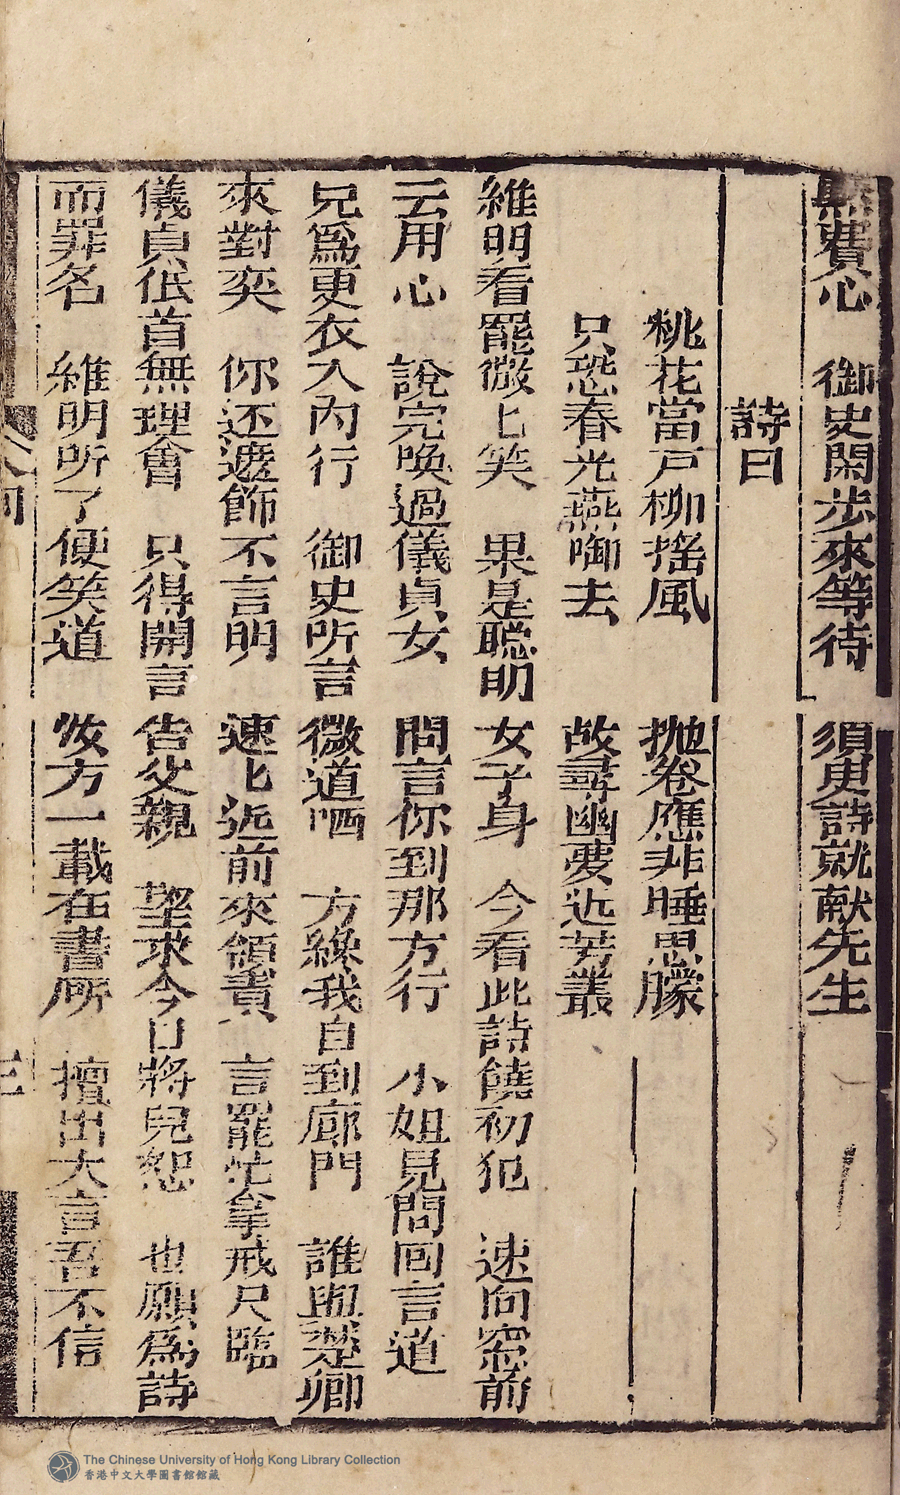 費心　御史閑步來等待　須臾詩就献先生
詩曰
桃花當戸柳搖風　抛卷應非睡思朦
只恐春光燕啣去　故尋幽夢近芳叢
維明看罷微匕笑　果是聡明女子身　今看此詩饒初犯　速向窓前
云用心　說完喚過儀貞女　問言你到那方行　小姐見問回言道
兄爲更衣入內行　御史听言微道哂　方縁我自到廊門　誰與楚卿
來對奕　你还遮飾不言明　速匕近前來領責　言罷忙拿戒尺臨
儀貞低首無理會　只得開言告父親　望求今日將兒恕　也願爲詩
而罪名　維明听了便笑道　汝方一載在書房　擅出大言吾不信
The Chinese University of Hong Kong Library Collection
香港中文大學圖書館館藏